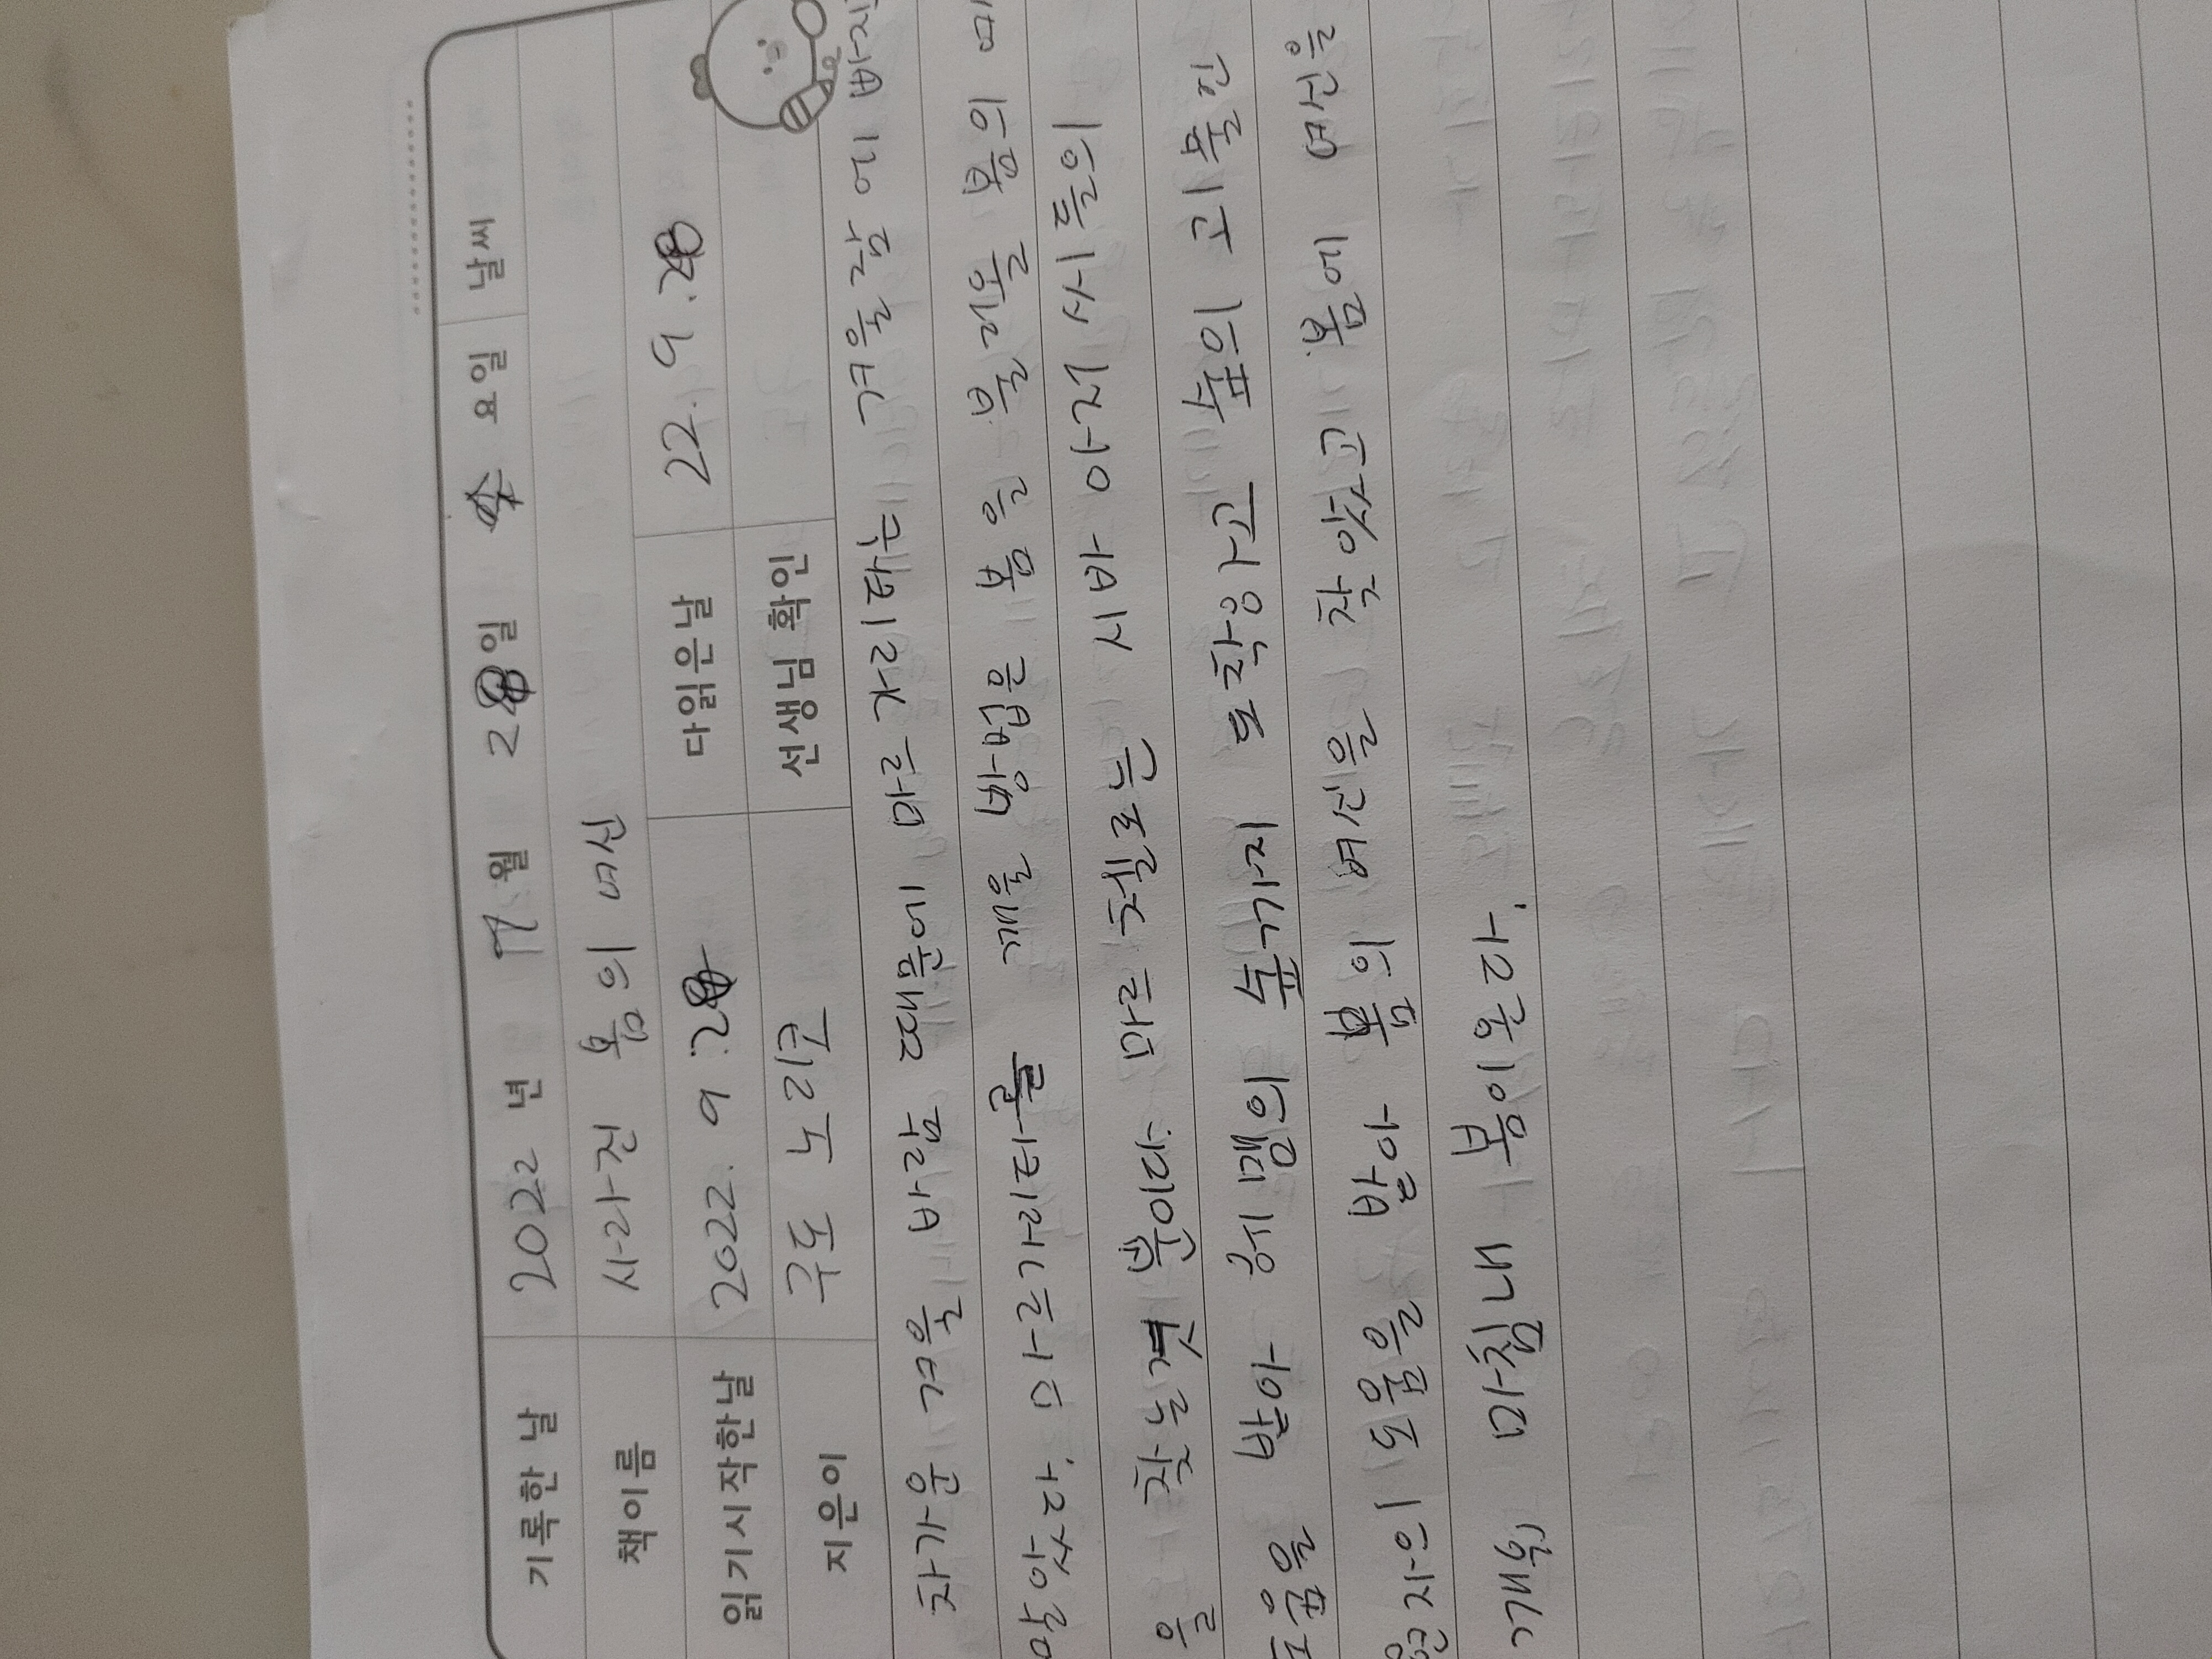 기록한 날 2022 년 9 월 28 일 수 요일 날씨
책이름 사라진 봄의 여신
읽기시작한날 2022. 9 .28 다읽은날 22. 9 .28
지은이 구도 노리코 선생님 확인
차가운 겨울 바람 때문에 마르가리타는 겨울잠에 빠지
말았다. 마르가리타를 깨울 방법은 봄을 불러올 봄의
을 찾는것 뿐이다. 마르첼로는 시바 아저씨들의
도움을 받아 숲까지 도착하고 숲의 괴물인
현자의 도움을 받아 봄의 여신을 찾았고 봄에 여신을
깨워 마침내 봄이온다.